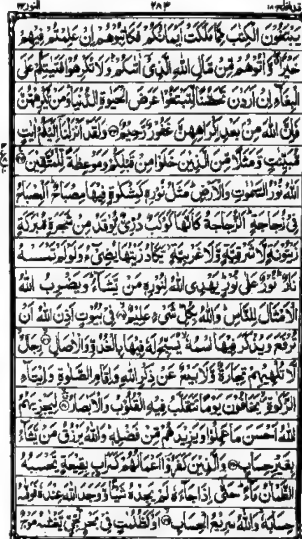 يَبْتَغُونَ الْكِتٰبَ مِمَّا مَلَكَتْ اَيْمَانُكُمْ فَكَاتِبُوْهُمْ اِنْ عَلِمْتُمْ فِيْهِمْ
خَيْرًا وَّاٰتُوْهُمْ مِّنْ مَّالِ اللّٰهِ الَّذِیْۤ اٰتٰىكُمْ وَلَا تُكْرِهُوْا فَتَيٰتِكُمْ عَلَی
الْبِغَآءِ اِنْ اَرَدْنَ تَحَصُّنًا لِّتَبْتَغُوْا عَرَضَ الْحَيٰوةِ الدُّنْيَا وَمَنْ يُّكْرِهْهُّنَّ
فَاِنَّ اللّٰهَ مِنْ بَعْدِ اِكْرَاهِهِنَّ غَفُوْرٌ رَّحِيْمٌ وَلَقَدْ اَنْزَلْنَاۤ اِلَيْكُمْ اٰيٰتٍ
مُّبَيِّنٰتٍ وَّمَثَلًا مِّنَ الَّذِيْنَ خَلَوْا مِنْ قَبْلِكُمْ وَمَوْعِظَةً لِّلْمُتَّقِيْنَ
اَللّٰهُ نُوْرُ السَّمٰوٰتِ وَالْاَرْضِ مَثَلُ نُوْرِهٖ كَمِشْكٰوةٍ فِيْهَا مِصْبَاحٌ اَلْمِصْبَاحُ
فِیْ زُجَاجَةٍ اَلزُّجَاجَةُ كَاَنَّهَا كَوْكَبٌ دُرِّیٌّ يُّوْقَدُ مِنْ شَجَرَةٍ مُّبٰرَكَةٍ
زَيْتُوْنَةٍ لَّا شَرْقِيَّةٍ وَّلَا غَرْبِيَّةٍ يَّكَادُ زَيْتُهَا يُضِیْٓءُ وَلَوْ لَمْ تَمْسَسْهُ
نَارٌ نُوْرٌ عَلٰی نُوْرٍ يَهْدِی اللّٰهُ لِنُوْرِهٖ مَنْ يَّشَآءُ وَيَضْرِبُ اللّٰهُ
الْاَمْثَالَ لِلنَّاسِ وَاللّٰهُ بِكُلِّ شَیْءٍ عَلِيْمٌ فِیْ بُيُوْتٍ اَذِنَ اللّٰهُ اَنْ
تُرْفَعَ وَيُذْكَرَ فِيْهَا اسْمُهٗ يُسَبِّحُ لَهٗ فِيْهَا بِالْغُدُوِّ وَالْاٰصَالِ رِجَالٌ
لَّا تُلْهِيْهِمْ تِجَارَةٌ وَّلَا بَيْعٌ عَنْ ذِكْرِ اللّٰهِ وَاِقَامِ الصَّلٰوةِ وَاِيْتَآءِ
الزَّكٰوةِ يَخَافُوْنَ يَوْمًا تَتَقَلَّبُ فِيْهِ الْقُلُوْبُ وَالْاَبْصَارُ لِيَجْزِيَهُمُ
اللّٰهُ اَحْسَنَ مَا عَمِلُوْا وَيَزِيْدَهُمْ مِّنْ فَضْلِهٖ وَاللّٰهُ يَرْزُقُ مَنْ يَّشَآءُ
بِغَيْرِ حِسَابٍ وَالَّذِيْنَ كَفَرُوْۤا اَعْمَالُهُمْ كَسَرَابٍ بِقِيْعَةٍ يَّحْسَبُهُ
الظَّمْاٰنُ مَآءً حَتّٰۤی اِذَا جَآءَهٗ لَمْ يَجِدْهُ شَيْـًٔا وَّوَجَدَ اللّٰهَ عِنْدَهٗ فَوَفّٰىهُ
حِسَابَهٗ وَاللّٰهُ سَرِيْعُ الْحِسَابِ اَوْ كَظُلُمٰتٍ فِیْ بَحْرٍ لُّجِّیٍّ يَّغْشٰىهُ مَوْجٌ